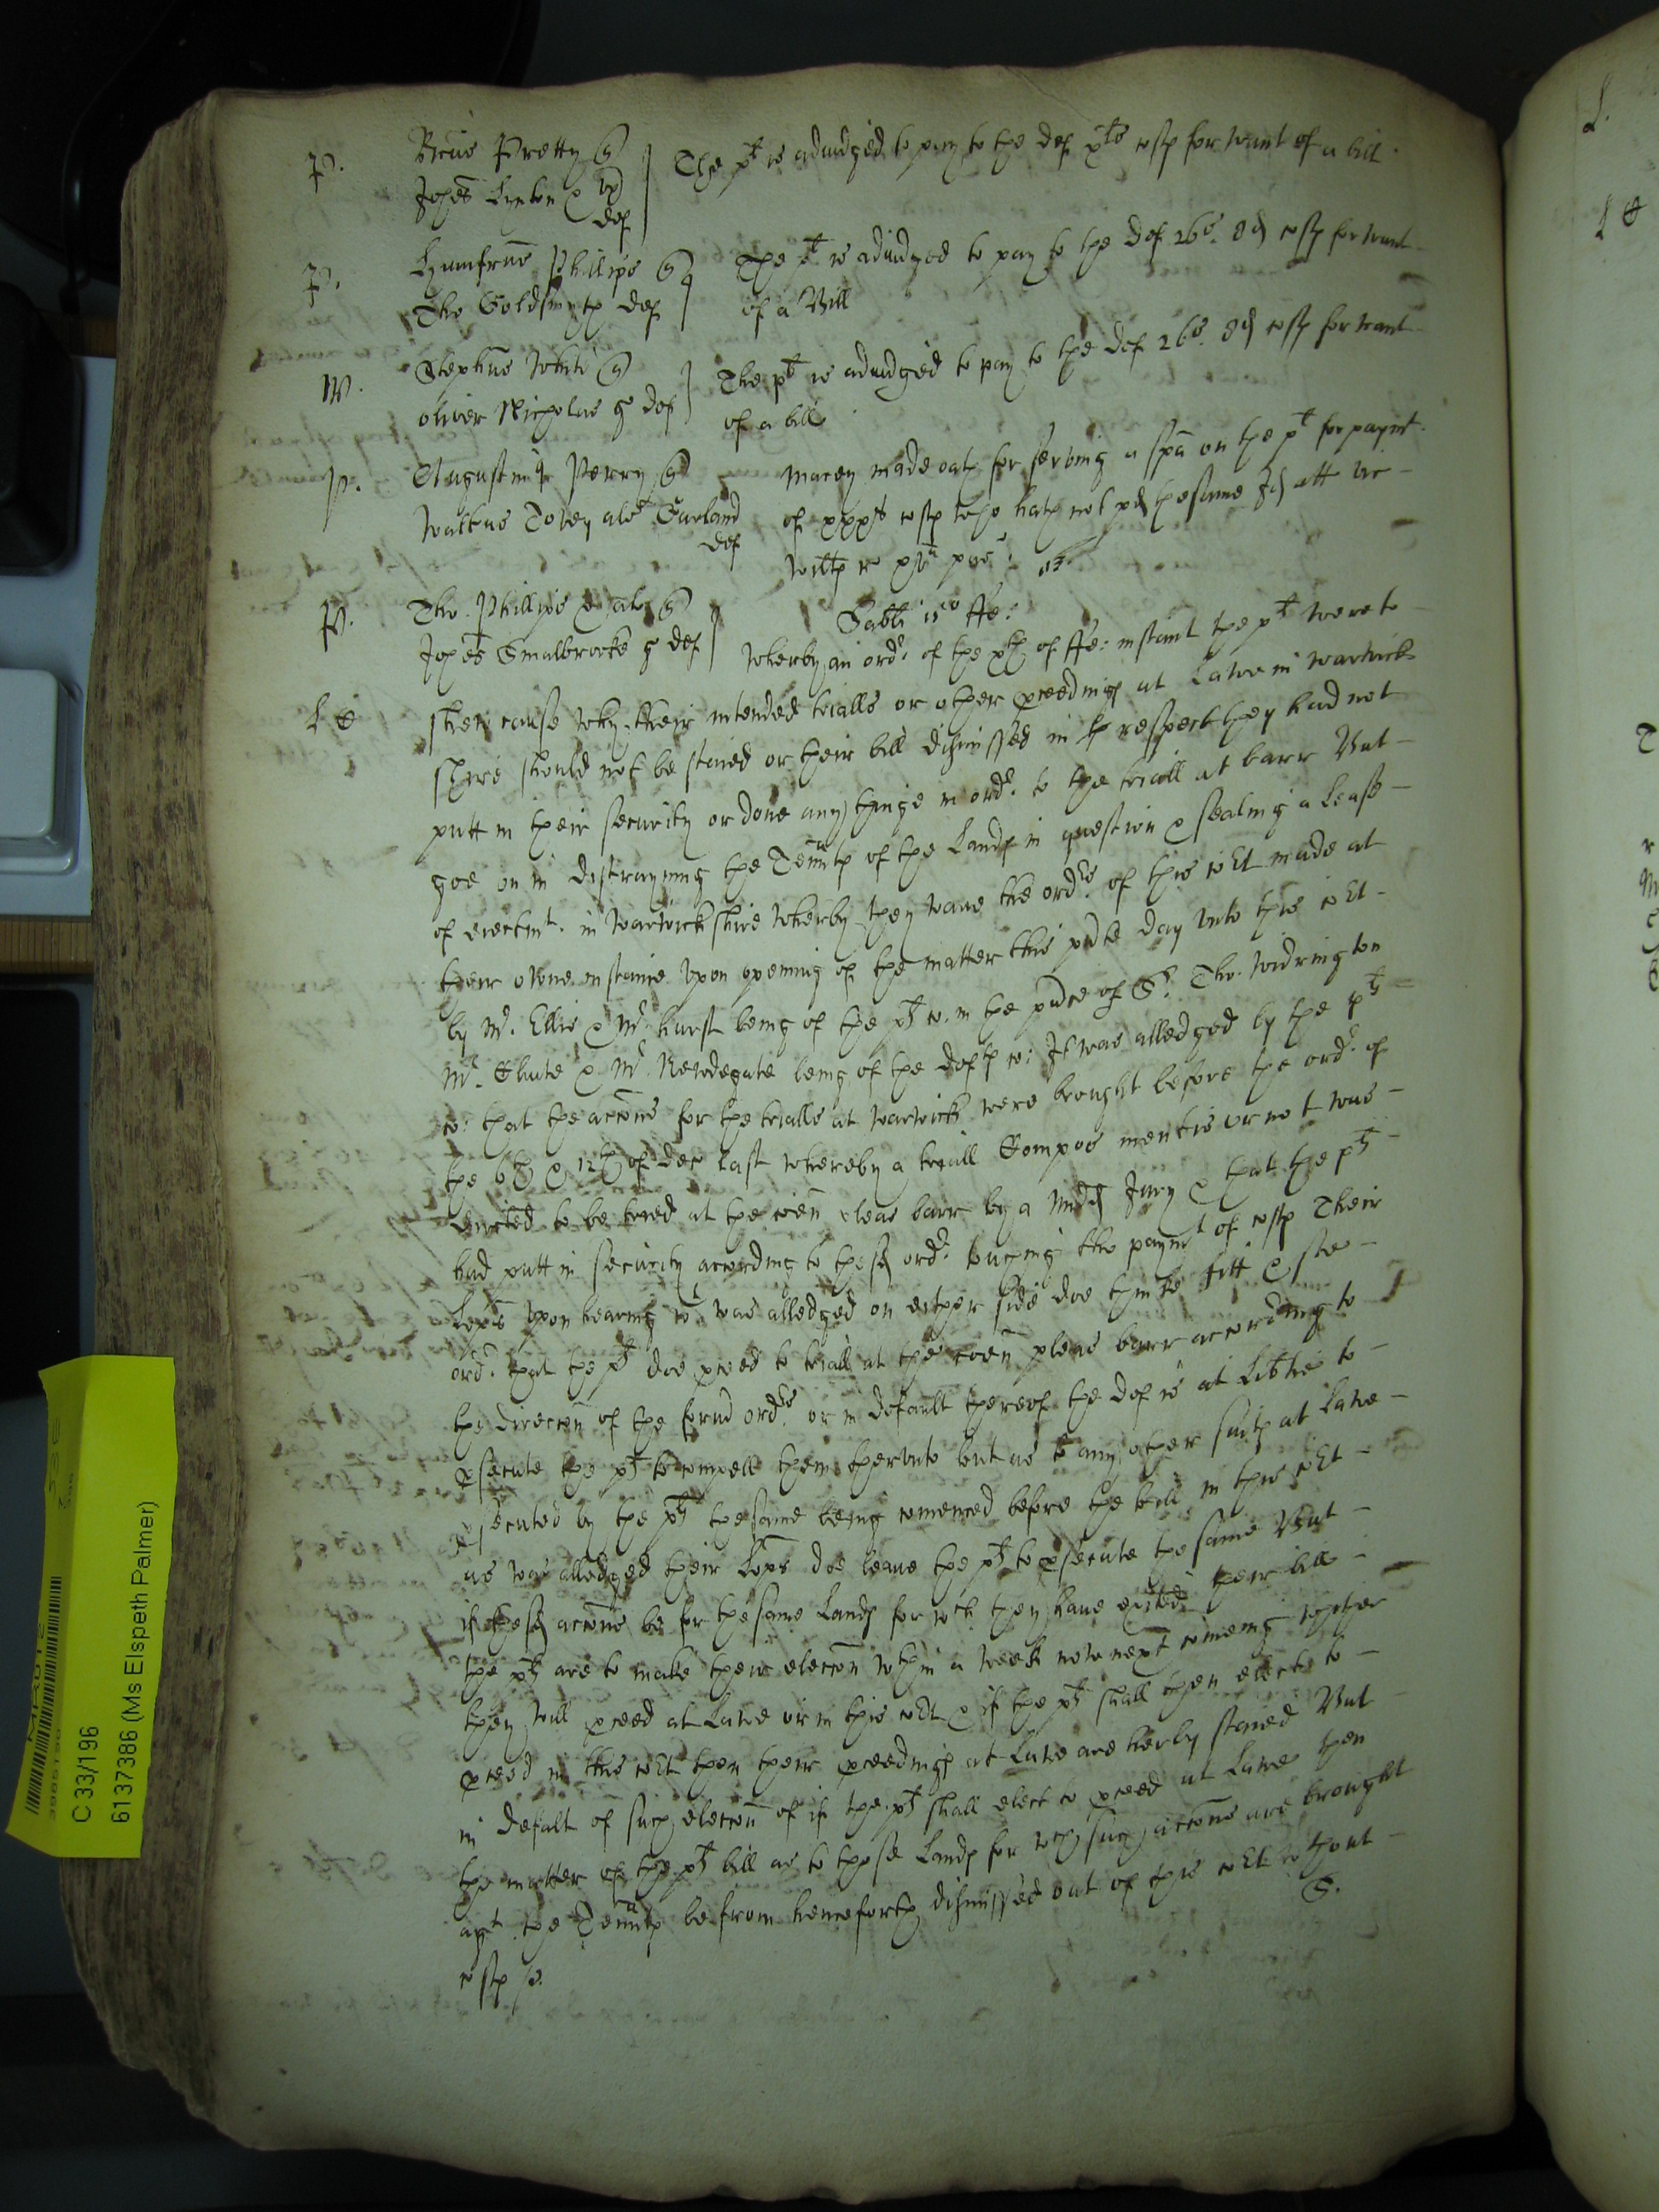 P. Pretty q
Johes Lynton & ux def
The plt is adiudged to pay to the def xls costs for want of a bill
P. Humfrus Phillips q
Tho Goldsmyth def
The plt is adiudged to pay to the def 26s. 8d costs for want
of a Bill
W. Stephus White q
Oliver Nicholas gen def
The plt is adiudged to pay to the def 26s. 8d costs for want
of a bill
P. Augustin Perry q
Walterus Tovey als Garland
def
Macey made oath for serving a spa on the plt for paymt
of costs who hath not pd the same Id att
P. Tho. Phillips & al q
Johes Smalbrooke g def
Sabti 15o ffe:
Wherby an ordr. of the xth of ffe: instant the plt were to
shew cause why their intended trialls or other pceedings at Lawe in warwick
shire should not be staied or their bill dismissed in respect they had not
putt in their security or done any thinge in ordr. to the triall at barr But
goe on in distrayning the Tennts of the Lands in question & sealing a Lease
of eiectmt. in Warwickshire wherby they wave the ordrs of this Cort made at
their owne instance Upon opening of the matter this pnte day unto this Cort
by Mr. Ellis & Mr. hurst being of the plts co. in the pnce of Sr. Tho. Widrington
Mr. Chute & Mr. Newdegate being of the defts co: It was alledged by the plts
co: that the accons for the trialls at warwick were brought before the ordr. of
the 6th & 12th of Dec last whereby a triall Compos mentis or not was
directed to be tryed at the coen pleas barr by a Midd Jury & that the plts
had putt in security according to the sd ordr. touching the paymt of costs Their
Lopps upon hearing wt was alledged on either side doe thinke fitt & soe
ordr. that the plt doe pceed to triall at the coen pleas barr according to
the direccon of the formd ordrs. or in default thereof the def is at Libtie to
psecute the plts to compell them therunto but as to any other suits at Lawe
psecuted by the plts the same being comenced before the bill in this Cort
as was alledged their Lopps doe leave the plts to psecute the same But
if the sd accons be for the same Lands for wch they have exited their bill
the plts are to make their eleccon wthin a week now next comeing whether
they will pceed at Lawe or in this Cort & if the plts shall then elect to
pceed in this Cort then their pceedings at Lawe are herby staied But
in defalt of such eleccon of if the plts shall elect to pceed at Lawe then
the matter of the plts bill as to those Lands for wch such accons are brought
agt the Tennts be from henceforth dismissed out of this Cort wthout
costs
S.
C 33/196
6137386 (Ms Elspeth Palmer)